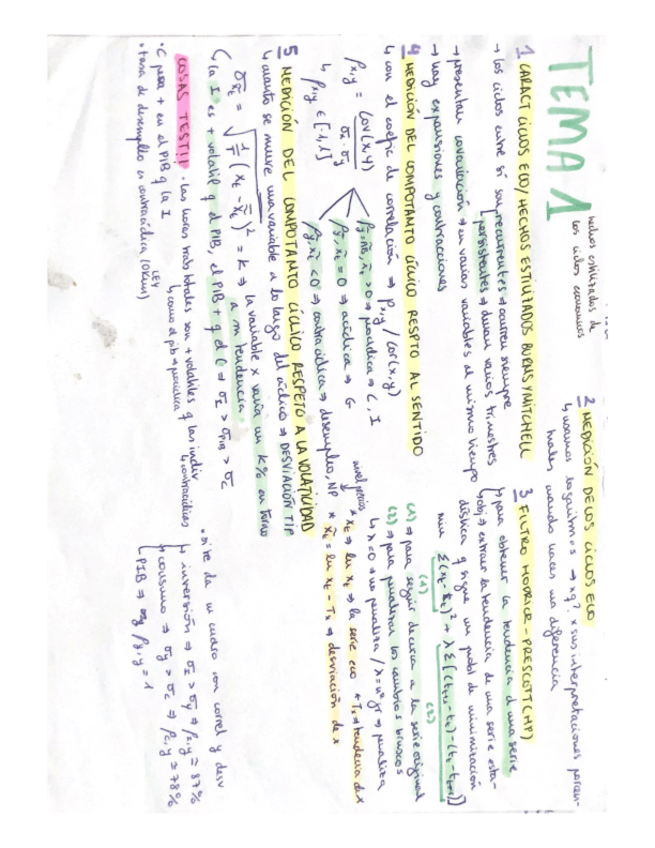 TEMA 1
hechos estilizados de
los ciclos economicos
1 CARACT CICLOS ECO/HECHOS ESTILIZADOS BURNS Y MITCHELL
→ los ciclos entre sí son recurrentes → ocurren siempre
persistentes → duran varios trimestres
→ presentan covariación → en varias variables al mismo tiempo
→ hay expansiones y contracciones
4 MEDICIÓN DEL COMPOTANTO CÍCLICO RESPTO AL SENTIDO
↳ con el coefic de correlación ⇒ ρx,y / cor(x,y)
ρx,y = Cov(x,y) / σx · σy
↳ ρx,y ∈ [-1,1]
> 0 ⇒ procíclica ⇒ C, I
= 0 ⇒ acíclica ⇒ G
< 0 ⇒ contracíclica ⇒ desempleo, NP
5 MEDICIÓN DEL COMPOTANTO CÍCLICO RESPETO A LA VOLATILIDAD
↳ cuanto se mueve una variable a lo largo del ciclo ⇒ DESVIACIÓN TIP
= K ⇒ la variable x varía un K% en torno
a su tendencia.
↳ la I es + volatil q el PIB, el PIB + q el C ⇒ σI > σPIB > σC
COSAS TEST!!
• las horas trab totales son + volatiles q las indiv
↳ como el pib ⇒ procíclica
↳ contracíclicas
• C pesa + en el PIB q la I
• tasa de desempleo es contracíclica (LEY OKUN)
2 MEDICIÓN DE LOS CICLOS ECO
↳ usamos logaritmos → xq? x sus interpretaciones porcen-
tuales cuando haces una diferencia
3 FILTRO HODRICK-PRESCOTT (HP)
↳ para obtener la tendencia d una serie
↳ obj ⇒ extraer la tendencia de una serie esta-
dística q sigue un probl de minimización
(1) (2)
(1) ⇒ para seguir de cerca a la serie original
(2) ⇒ para penalizar los cambios bruscos
↳ λ=0 ⇒ no penaliza / λ = nº gr ⇒ penaliza
* xt ⇒ ln xt ⇒ la serie eco * Tx ⇒ tendencia d x
* x̃t = ln xt − Tx ⇒ desviación de x
• si te da un cuadro con correl y desv
↳ inversión ⇒ σI > σy ⇒ ρI,y = 87%
↳ consumo ⇒ σy > σc ⇒ ρc,y = 78%
↳ PIB ⇒ ρy,y = 1